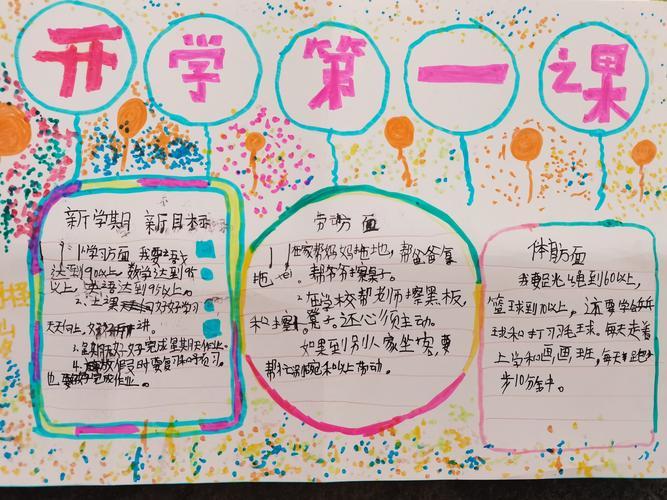 开学第一课
新学期 新目标
1.学习方面 我要
达到90以上,数学达到95
以上,英语达到95以上。
2.上课 好好学习
天天向上,好好听讲。
3.星期六好好完成星期天作业。
4.放假 时要复习和预习。
也要 完成作业。
劳动方面
1.在家帮妈妈拖地,帮爸爸
地,帮爷爷擦桌子。
2.在学校帮老师擦黑板,
和擦 凳子,还必须主动。
如果到别人家坐客,要
帮 劳动。
体育方面
我要足光 到60以上,
篮球到70以上,还要学乒乓
球和打羽毛球。每天走着
上学和画画班,每天 跑
步10分钟。